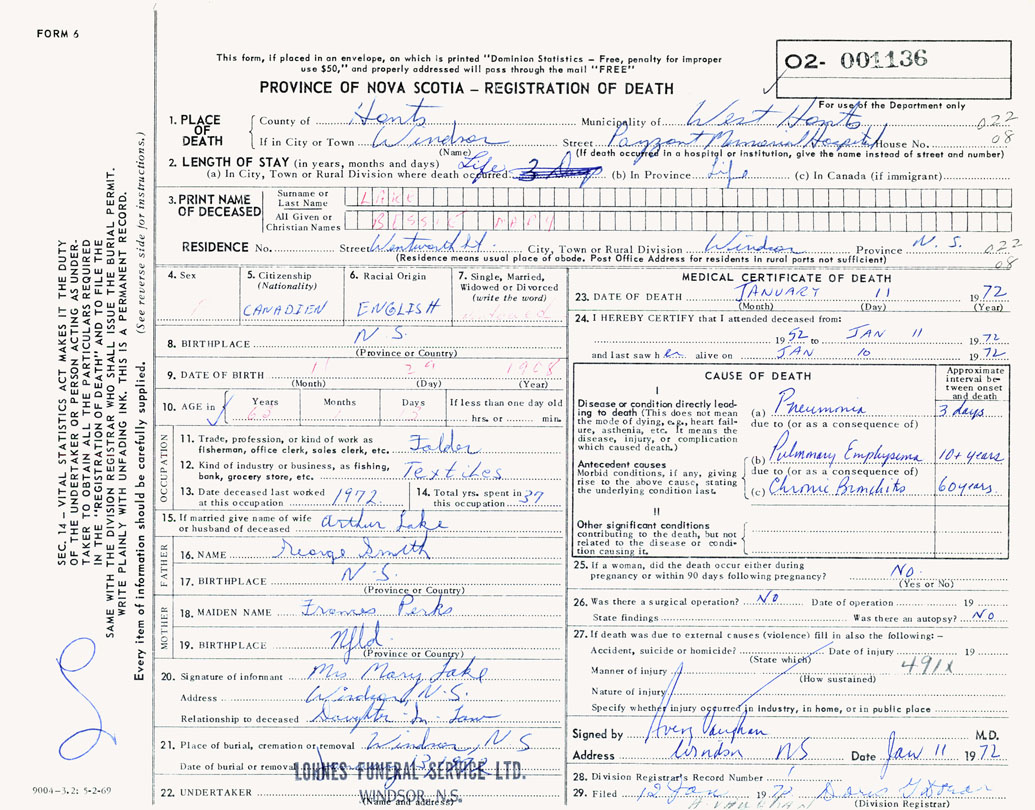 FORM 6
This form, if placed in an envelope, on which is printed "Dominion Statistics – Free, penalty for improper
use $50," and properly addressed will pass through the mail "FREE"
O2- 001136
PROVINCE OF NOVA SCOTIA – REGISTRATION OF DEATH
For use of the Department only
1. PLACE OF DEATH
County of Hants Municipality of West Hants 022
If in City or Town Windsor Street Payzant Memorial Hospital House No. 08
(Name) (If death occurred in a hospital or institution, give the name instead of street and number)
2. LENGTH OF STAY (in years, months and days)
(a) In City, Town or Rural Division where death occurred Life 3 Days (b) In Province Life (c) In Canada (if immigrant)
3. PRINT NAME OF DECEASED
Surname or Last Name LAKE
All Given or Christian Names BESSIE MARY
RESIDENCE No. Street Wentworth St. City, Town or Rural Division Windsor Province N. S. 022
(Residence means usual place of abode. Post Office Address for residents in rural parts not sufficient) 08
4. Sex
5. Citizenship (Nationality) CANADIEN
6. Racial Origin ENGLISH
7. Single, Married, Widowed or Divorced (write the word)
8. BIRTHPLACE N S.
(Province or Country)
9. DATE OF BIRTH 11 29 1908
(Month) (Day) (Year)
10. AGE in Years 63 Months 1 Days 13 If less than one day old
hrs. or min.
OCCUPATION
11. Trade, profession, or kind of work as fisherman, office clerk, sales clerk, etc. Folder
12. Kind of industry or business, as fishing, bank, grocery store, etc. Textiles
13. Date deceased last worked at this occupation 1972
14. Total yrs. spent in this occupation 37
15. If married give name of wife or husband of deceased Arthur Lake
FATHER
16. NAME George Smith
17. BIRTHPLACE N. S.
(Province or Country)
MOTHER
18. MAIDEN NAME Frances Perks
19. BIRTHPLACE Nfld.
(Province or Country)
20. Signature of informant Mrs Mary Lake
Address Windsor, N. S.
Relationship to deceased Daughter-In-Law
21. Place of burial, cremation or removal Windsor, N S
Date of burial or removal
LOHNES FUNERAL SERVICE LTD.
WINDSOR, N.S.
22. UNDERTAKER
(Name and address)
MEDICAL CERTIFICATE OF DEATH
23. DATE OF DEATH JANUARY 11 1972
(Month) (Day) (Year)
24. I HEREBY CERTIFY that I attended deceased from:
1952 to JAN 11 1972
and last saw her alive on JAN 10 1972
CAUSE OF DEATH
Approximate interval between onset and death
I
Disease or condition directly leading to death (This does not mean the mode of dying, e.g., heart failure, asthenia, etc. It means the disease, injury, or complication which caused death.)
(a) Pneumonia 3 days
due to (or as a consequence of)
Antecedent causes
Morbid conditions, if any, giving rise to the above cause, stating the underlying condition last.
(b) Pulmonary Emphysema 10+ years
due to (or as a consequence of)
(c) Chronic Bronchitis 60 years.
II
Other significant conditions contributing to the death, but not related to the disease or condition causing it.
25. If a woman, did the death occur either during pregnancy or within 90 days following pregnancy? No.
(Yes or No)
26. Was there a surgical operation? NO Date of operation 19
State findings Was there an autopsy? NO
27. If death was due to external causes (violence) fill in also the following: –
Accident, suicide or homicide? Date of injury 19
(State which) 491X
Manner of injury
(How sustained)
Nature of injury
Specify whether injury occurred in industry, in home, or in public place
Signed by Avery Vaughan M.D.
Address Windsor NS Date Jan 11 1972
28. Division Registrar's Record Number 1
29. Filed 12 Jan 1972 Doris
(Division Registrar)
A. VAUGHAN
SEC. 14 – VITAL STATISTICS ACT MAKES IT THE DUTY
OF THE UNDERTAKER OR PERSON ACTING AS UNDER-
TAKER TO OBTAIN ALL THE PARTICULARS REQUIRED
IN THE "REGISTRATION OF DEATH" AND TO FILE THE
SAME WITH THE DIVISION REGISTRAR WHO SHALL ISSUE THE BURIAL PERMIT.
WRITE PLAINLY WITH UNFADING INK. THIS IS A PERMANENT RECORD.
Every item of information should be carefully supplied. (See reverse side for instructions.)
9004-3.2: 5-2-69